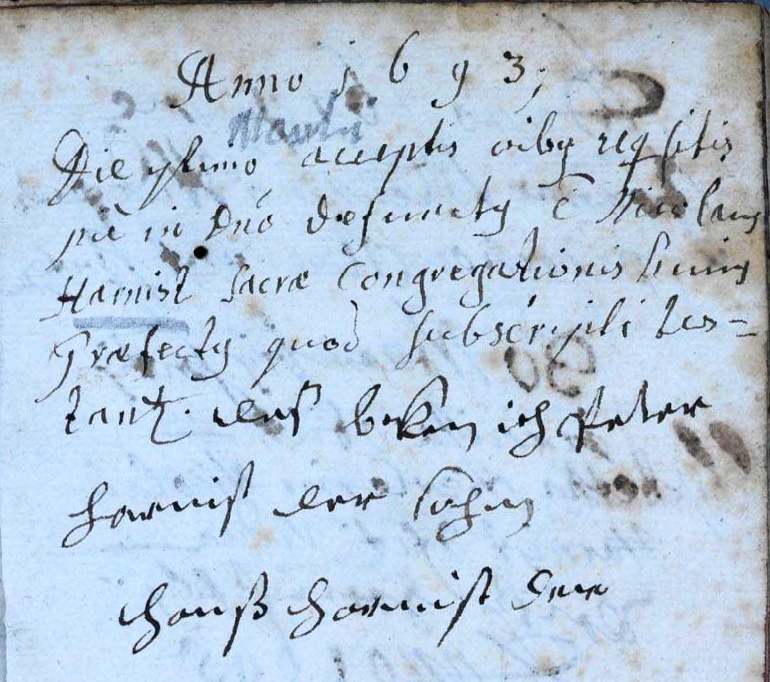 Anno 1693;
Die acceptis oib9 reqsitis
pie in Dno defunct9 e Nicolaus
Harnist Sacræ Congregationis
Præfect9 quod subscripti tes=
tant. das bekenn ich Peter
harnist der sohn
hanß harnist der